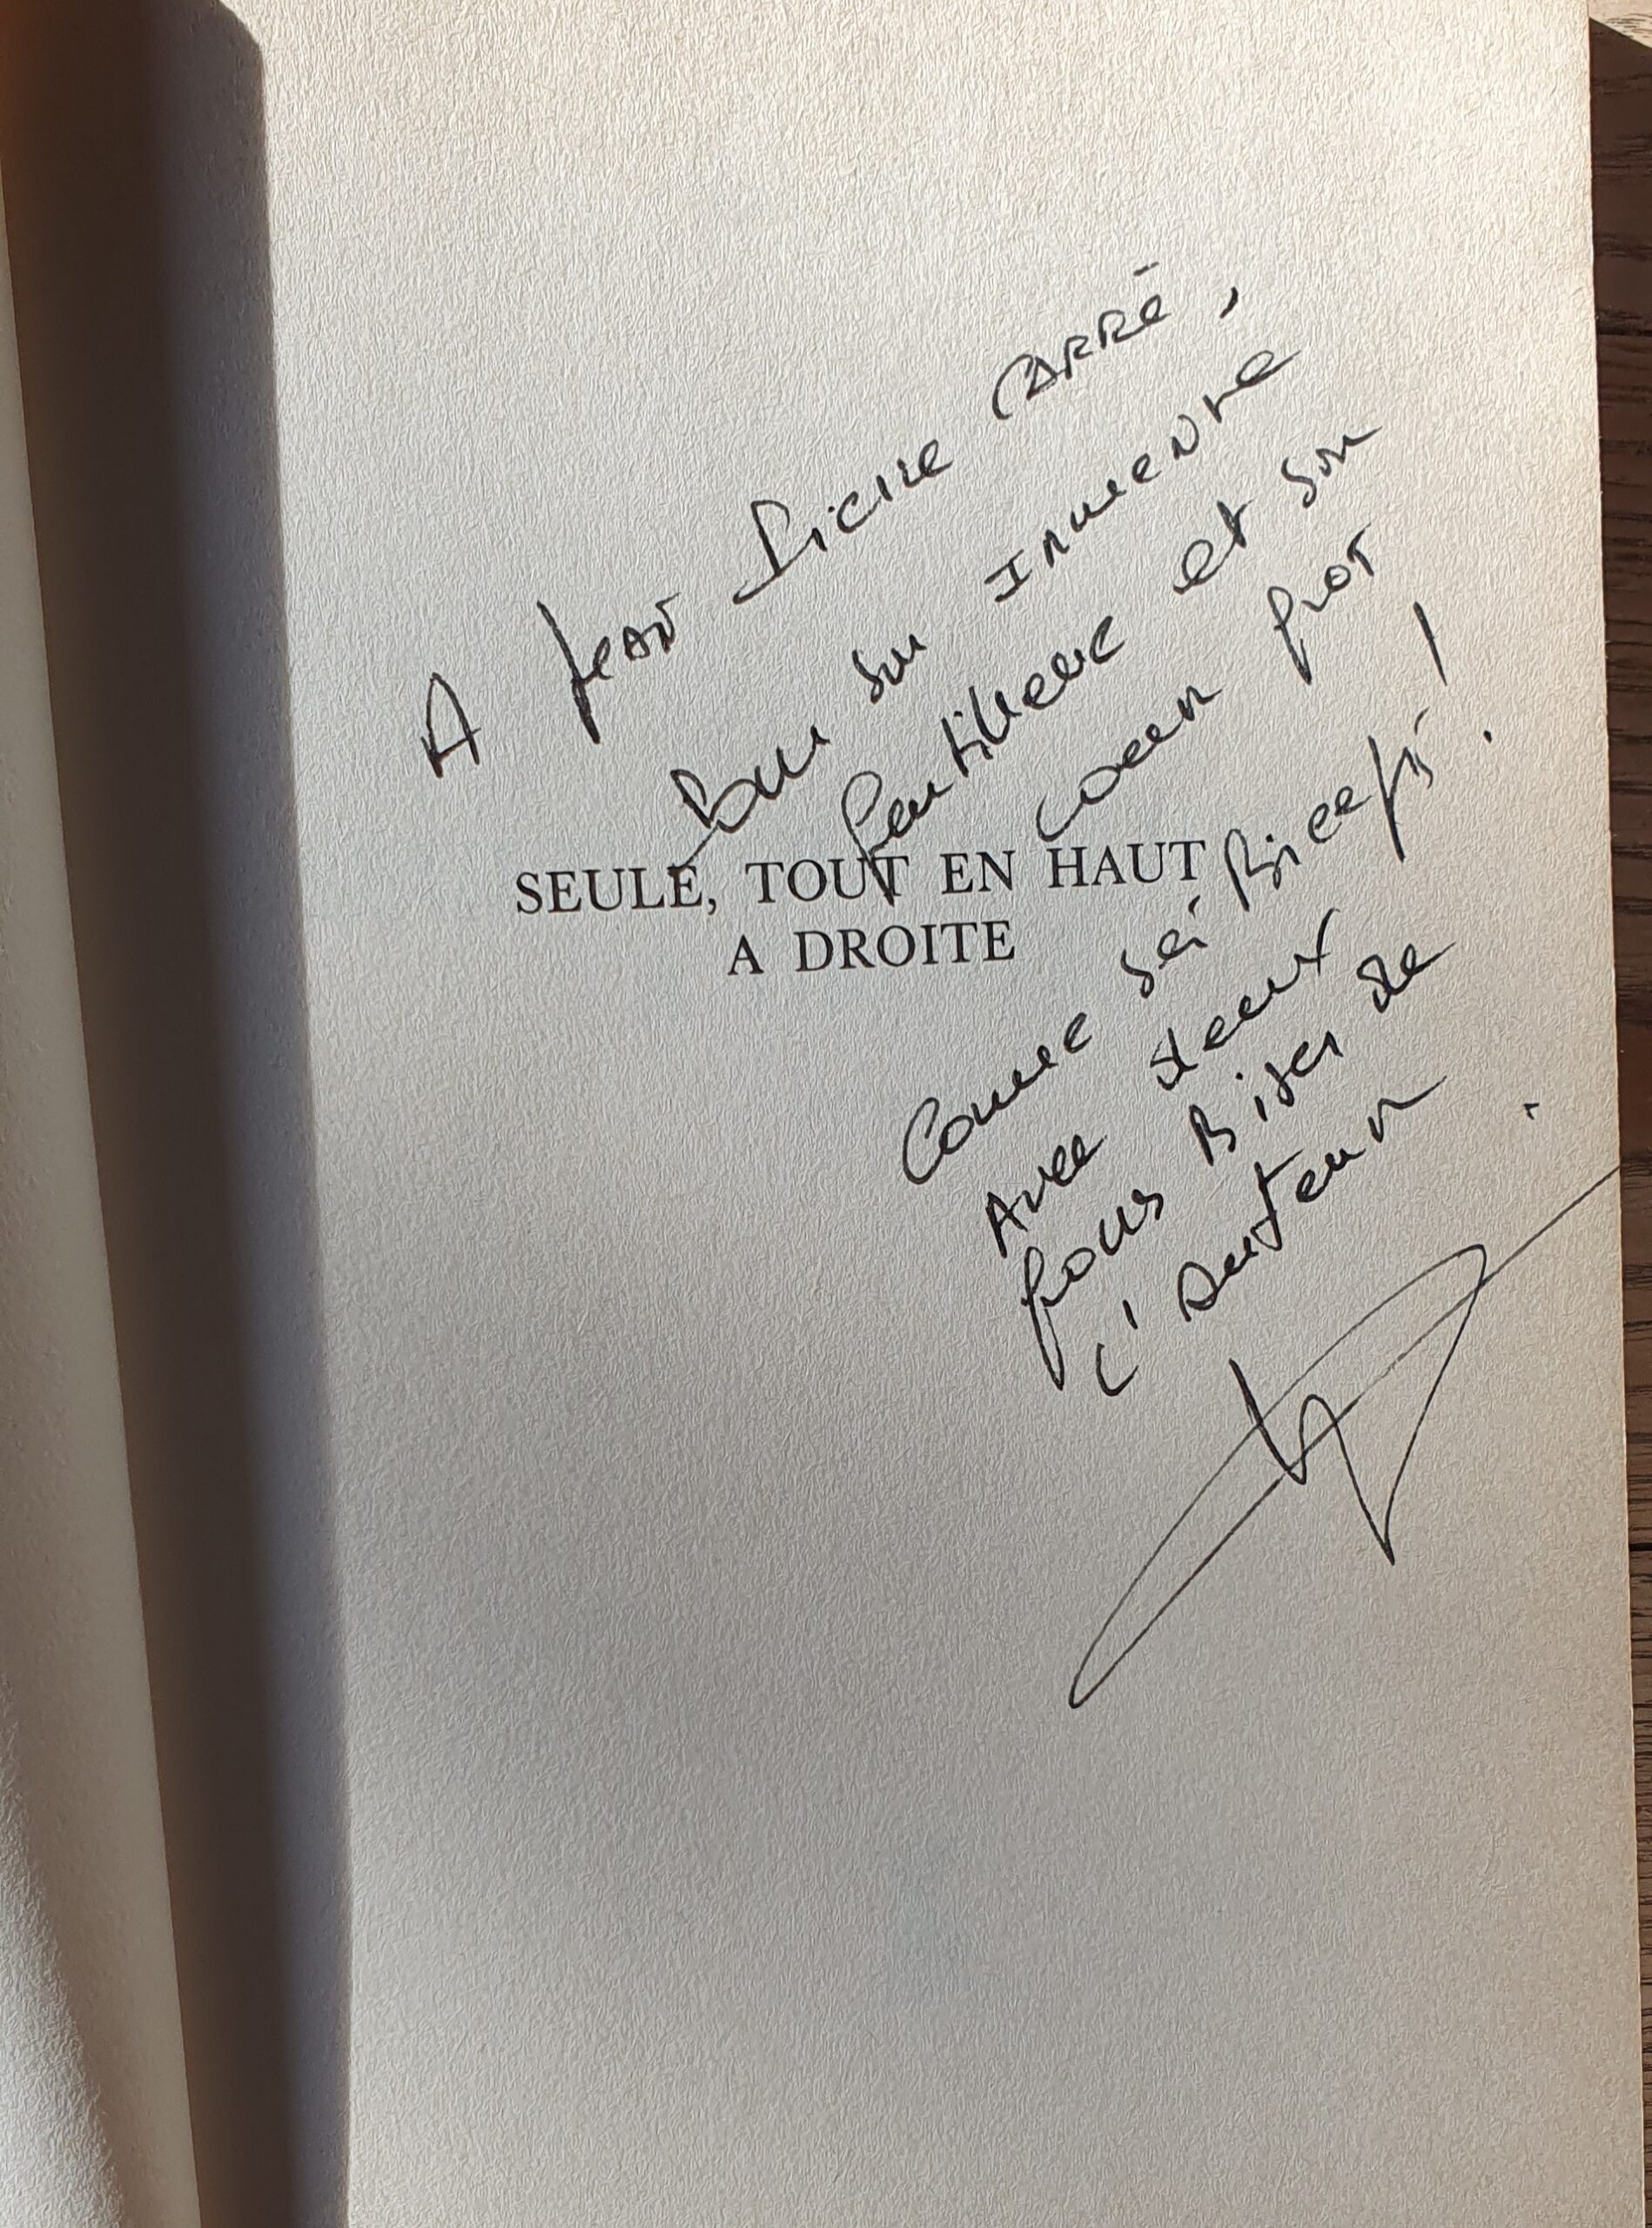 A Jean Pierre CARRÉ,
Pour son Immense
Gentillesse et son
Coeur gros
SEULE, TOUT EN HAUT
A DROITE
Comme ses Biceps !
Avec deux
gous Bises de
L'Auteur.